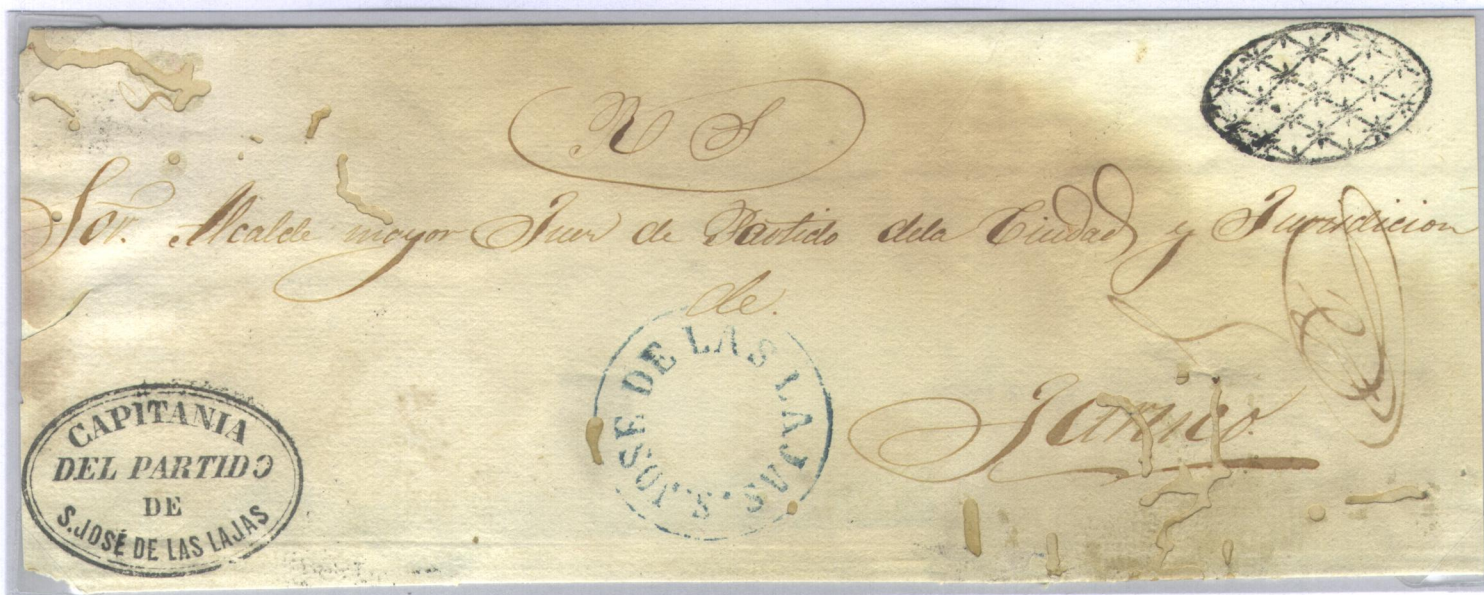 R S
Sor. Alcalde mayor Juez de Partido dela Ciudad y Jurisdicion
de.
Jaruco
S. JOSE DE LAS LAJAS.
CAPITANIA
DEL PARTIDO
DE
S. JOSÉ DE LAS LAJAS